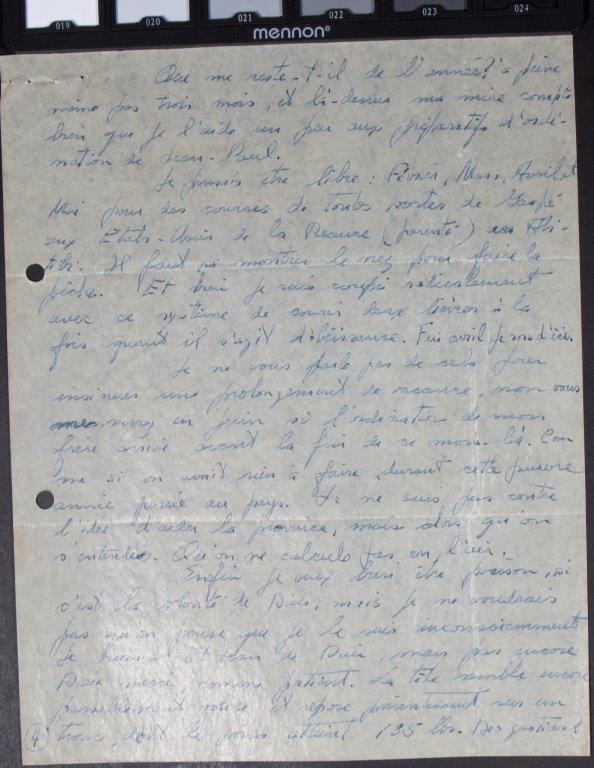 019 020 021 022 023 024
mennon®
Que me reste-t-il de l'année? à peine
même pas trois mois, et là-dessus ma mère compte
bien que je l'aide un peu aux préparatifs d'ordi-
nation de Jean-Paul.
Je pensais être libre: Février, Mars, Avril et
Mai pour des courses de toutes sortes de Gaspé
aux Etats-Unis de la Beauce (parenté) en Abi-
tibi. Il faut se montrer le nez pour faire la
pêche. Et bien je suis coupé radicalement
avec ce système de courir deux lièvres à la
fois quand il s'agit d'obéissance. Fin avril je
Je ne vous parle pas de cela pour
insinuer un prolongement de vacance, non vous
me en juin si l'ordination de mon
frère arrive avant la fin de ce mois-là. Com
me si on avait rien à faire durant cette pauvre
année passée au pays. Je ne suis pas contre
l'idée d'aider la province, mais alors qu'on
s'entende. Qu'on ne calcule pas en l'air.
Enfin je veux bien être poisson, si
c'est la volonté de Dieu, mais je ne voudrais
pas qu'on pense que je le suis inconsciemment
Je à de Dieu, mais pas encore
Dieu merci comme patient. La tête semble encore
passablement et repose présentement sur un
tronc, dont le poids atteint 195 lbs. Des
4